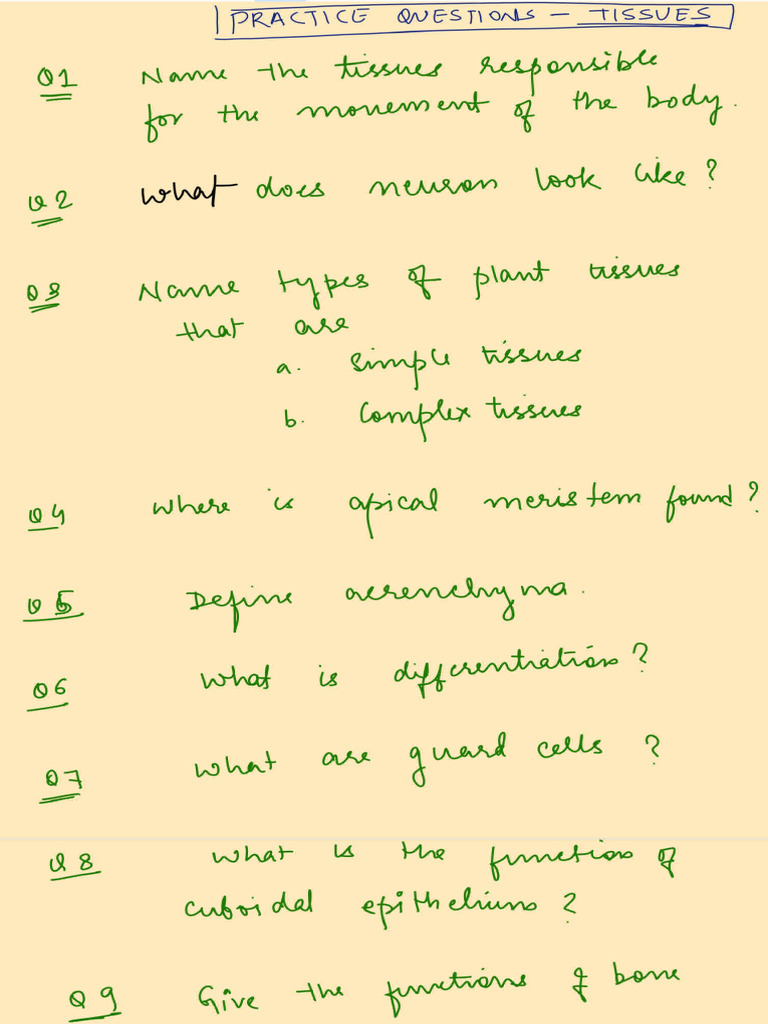 PRACTICE QUESTIONS - TISSUES
Q1 Name the tissues responsible
for the movement of the body.
Q2 What does neuron look like?
Q3 Name types of plant tissues
that are
a. Simple tissues
b. Complex tissues
Q4 Where is apical meristem found?
Q5 Define aerenchyma.
Q6 What is differentiation?
Q7 What are guard cells ?
Q8 What is the function of
cuboidal epithelium?
Q9 Give the functions of bone